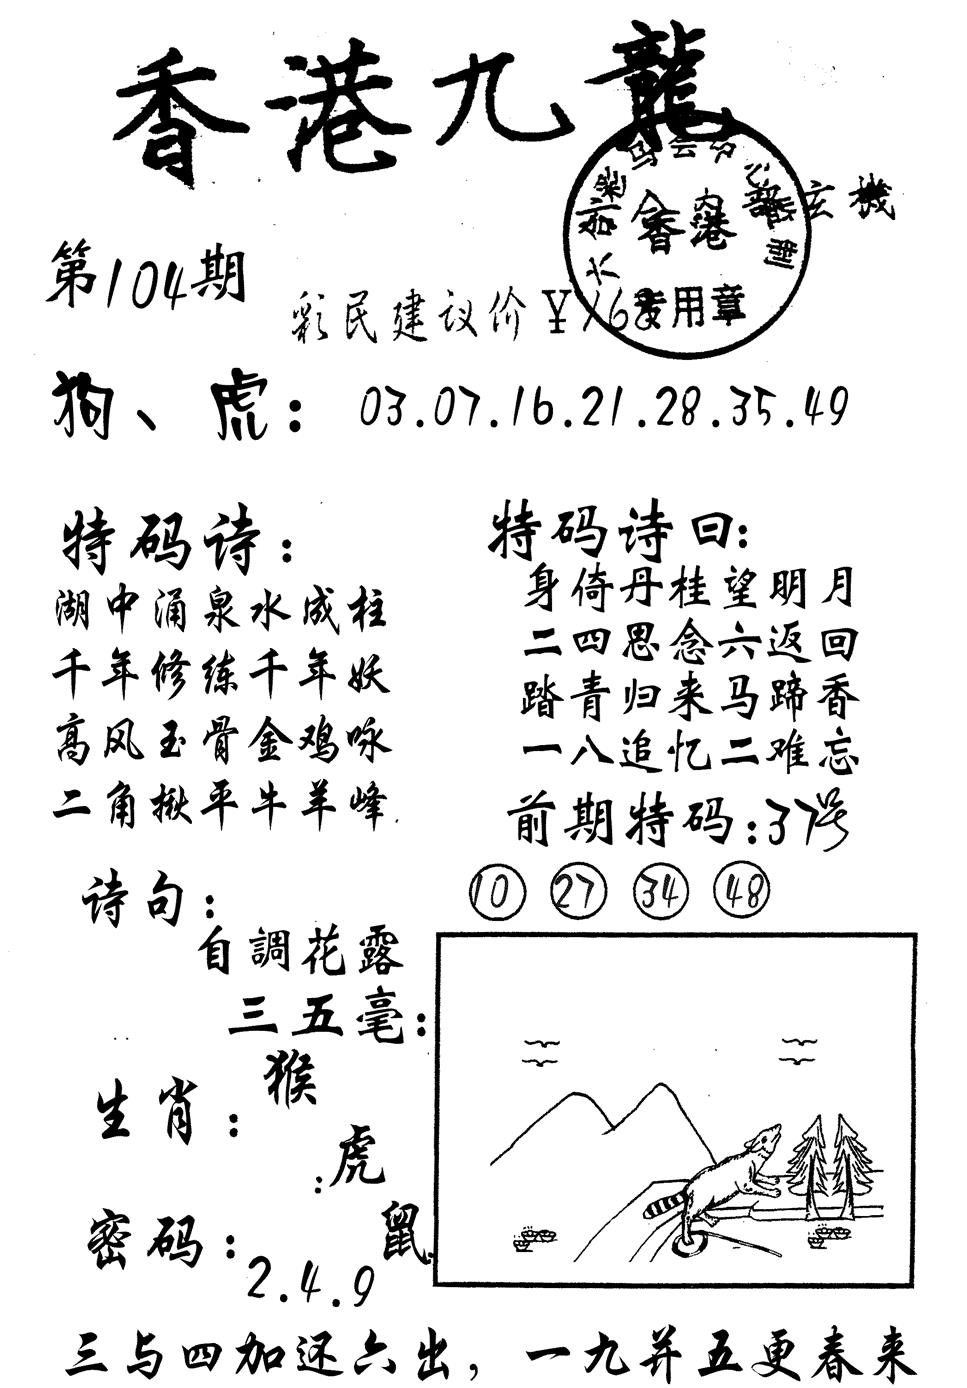 香港九龍
内部玄機
香港
专用章
第104期
彩民建议价￥168
狗、虎：03.07.16.21.28.35.49
特码诗：
湖中涌泉水成柱
千年修练千年妖
高风玉骨金鸡咏
二角揪平牛羊峰
特码诗曰：
身倚丹桂望明月
二四思念六返回
踏青归来马蹄香
一八追忆二难忘
前期特码：37号
10 27 34 48
诗句：
自調花露
三五毫：
生肖：猴
：虎
鼠
密码：2.4.9
三与四加还六出，一九并五更春来